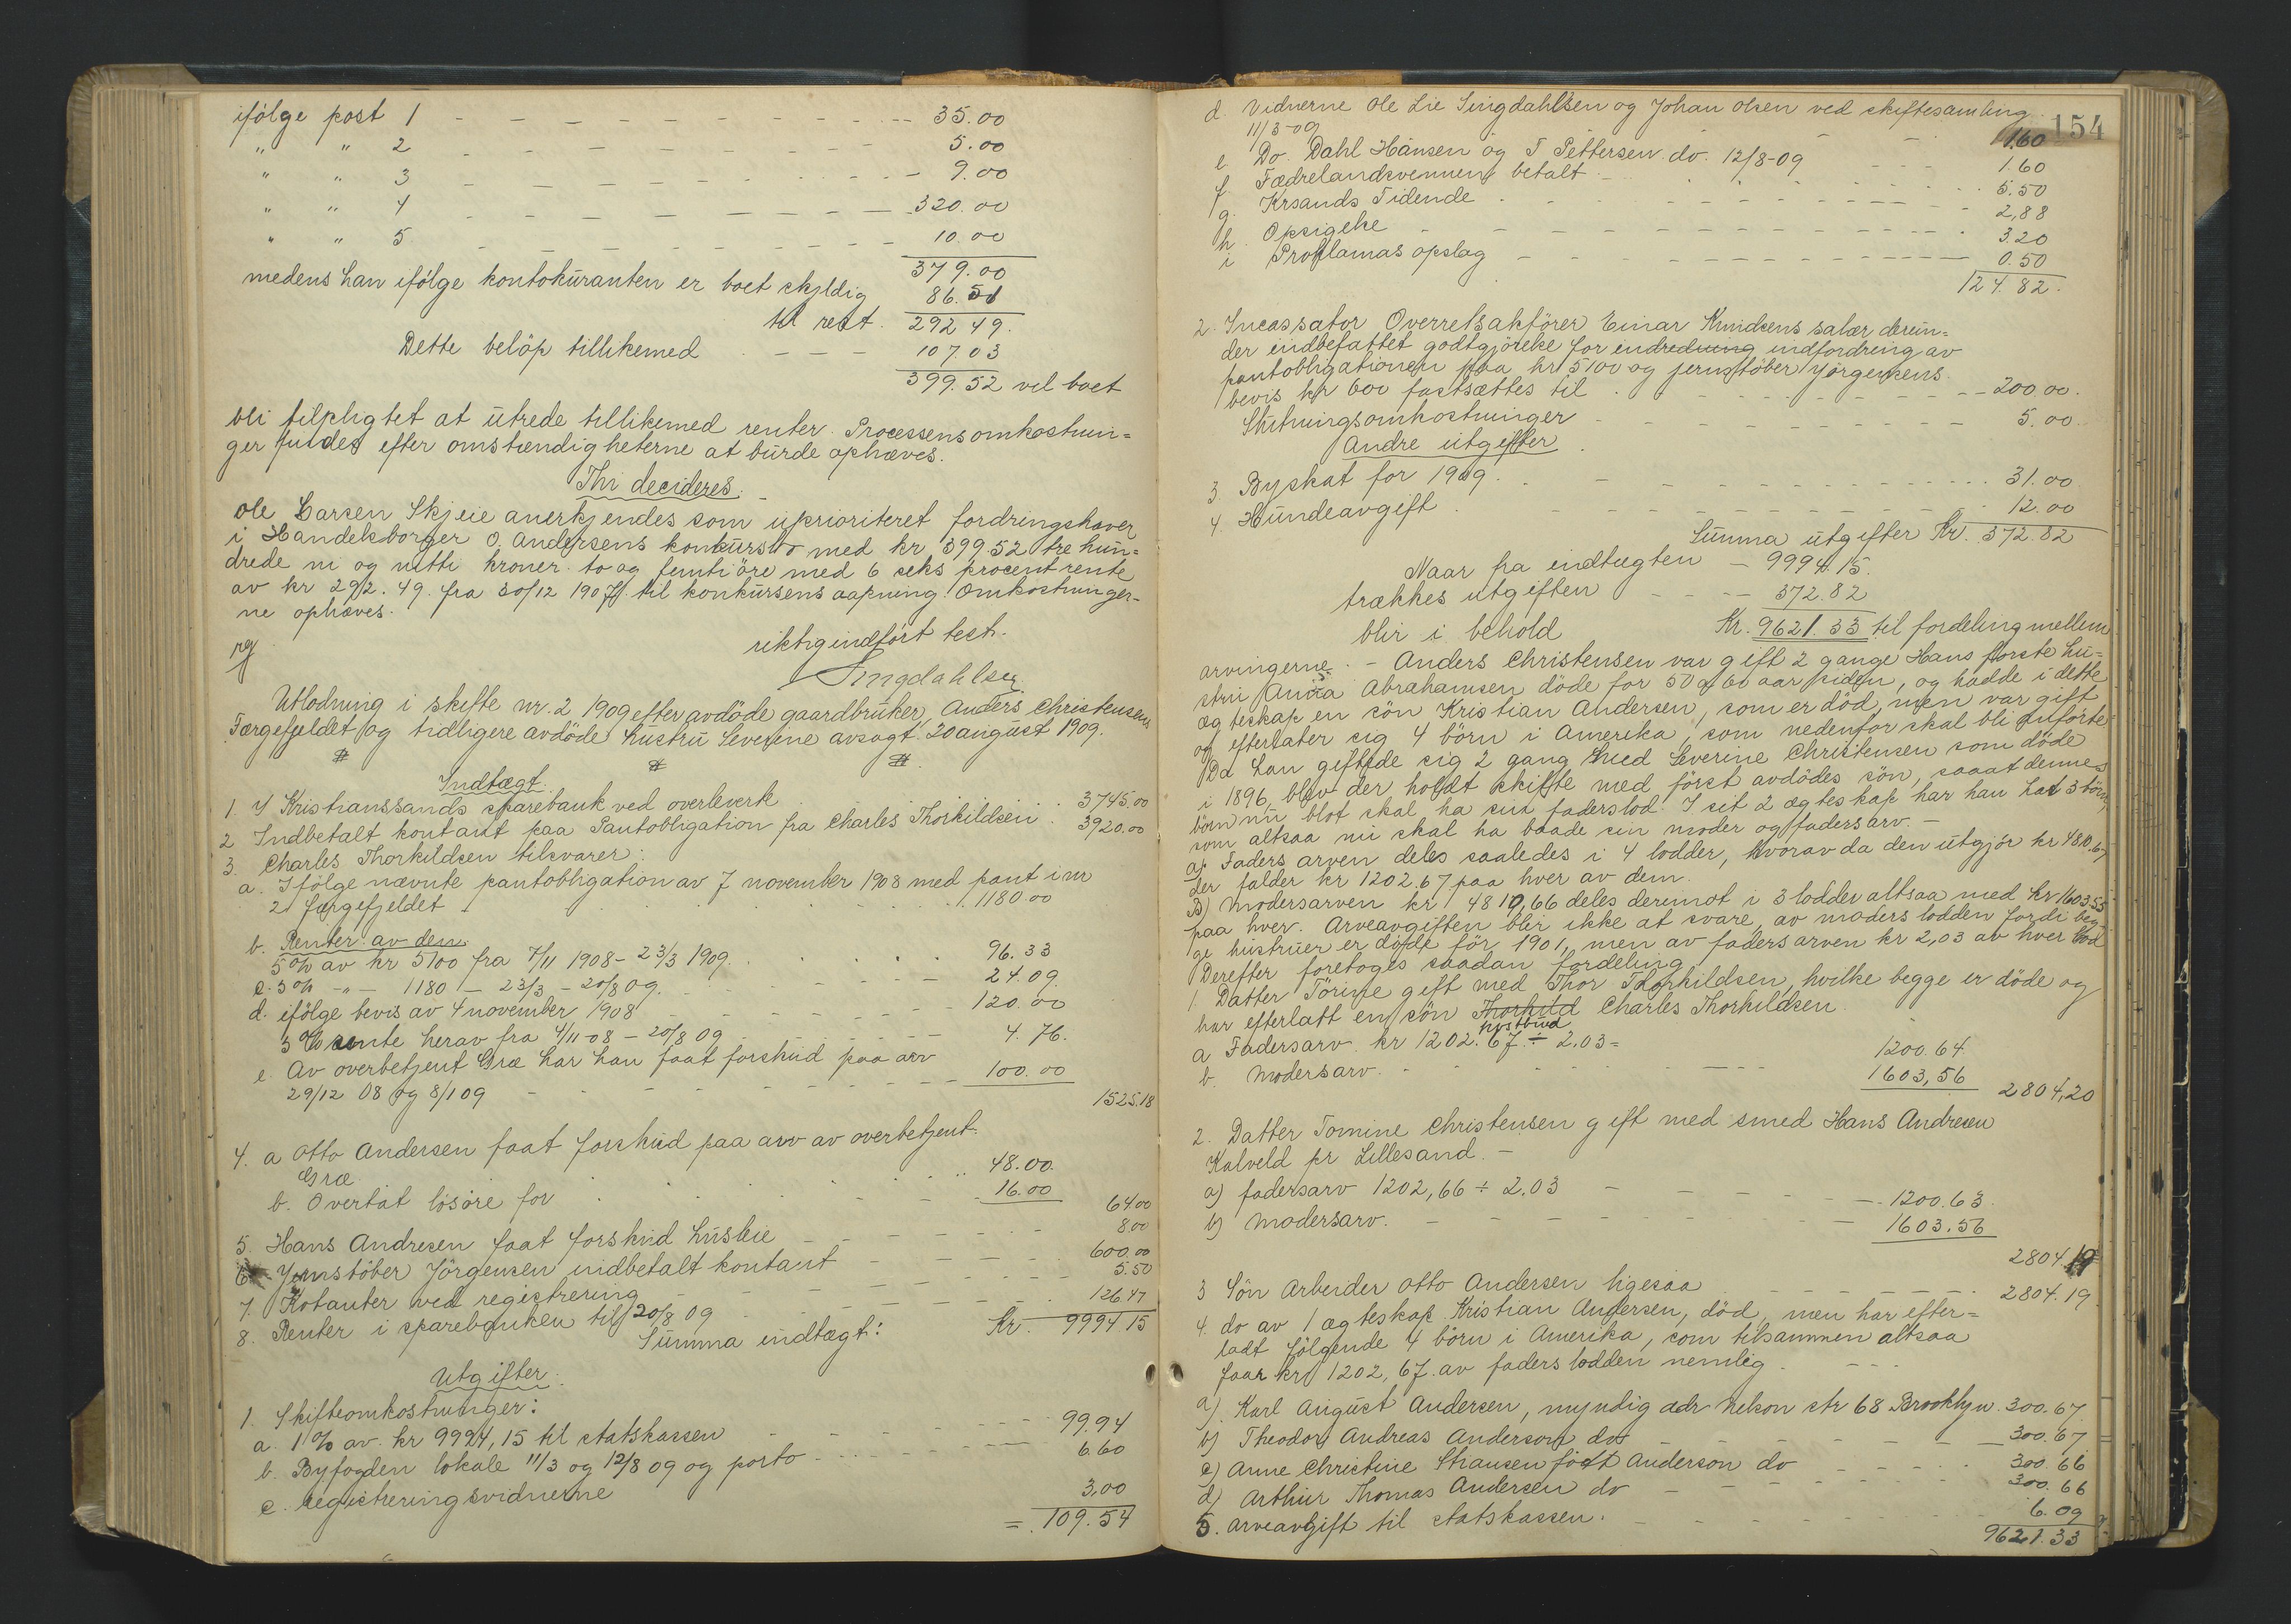 ifölge post 1 - - - - - - - - - - 35.00
" " 2 - - - - - - - - - 5.00
" " 3 - - - - - - - - - 9.00
" " 4 - - - - - - - - - 320.00
" " 5 - - - - - - - - - 10.00
379.00
medens han ifölge kontokuranten er boet skyldig 86.51
til rest. 292.49.
Dette belöp tillikemed - - - 107.03
399.52 vil boet
bli tilpligtet at utrede tillikemed renter. Processens omkostnin=
ger findes efter omstændigheterne at burde ophæves.
Thi decideres:
Ole Larsen Skjeie anerkjendes som uprioriteret fordringshaver
i Handelsborger O. Andersens konkursbo med kr 399.52 tre hun=
drede ni og nitti kroner to og femti öre med 6 seks procent rente
av kr 292.49. fra 30/12 1907 til konkursens aapning. Omkostninger-
ne ophæves.
riktig indfört test.
Singdahlsen
Utlodning i skifte nr. 2 1909 efter avdöde gaardbruker, Anders Christensen
Færgefjeldet og tidligere avdöde hustru Severine avsagt 20 august 1909.
Indtægt.
1. I Kristianssands sparebank ved overleverk . . . 3745.00
2 Indbetalt kontant paa Pantobligation fra Charles Thorkildsen . 3920.00
3. Charles Thorkildsen tilsvarer:
a. Ifölge nævnte pantobligation av 7 november 1908 med pant i nr
21 færgefjeldet . . . . . 1180.00
b. Renter av dem
5% av kr 5100 fra 7/11 1908 - 23/3 1909. . . . . 96.33
c. 5% -"- 1180 - 23/3 - 20/8 09. - - - - 24.09.
d. ifölge bevis av 4 november 1908 - - - - 120.00
5% rente herav fra 4/11-08 - 20/8 09 - - - - 4.76.
e. Av overbetjent Græ har han faat forskud paa arv
29/12 08 og 8/1 09 - - - - 100.00
1525.18
4. a Otto Andersen faat forskud paa arv av overbetjent
Græ . . . . . 48.00.
b. Overtat lösöre for . . . . 16.00
64.00
5. Hans Andresen faat forskud husleie - - - - 8.00
6 Jernstöber Jörgensen indbetalt kontant - - - - 600.00
7. Kotanter ved registrering - - - - 5.50
8. Renter i sparebanken til 20/8 09 - - - - 126.47
Summa indtægt: Kr. 9994.15
Utgifter:
1. Skifteomkostninger:
a. 1% av kr 9994,15 til statskassen - - - - 99.94
b. Byfogden lokale 11/3 og 12/8 09 og porto - - - - 6.60
c. registreringsvidnerne 3.00
=. 109.54
154
d. Vidnerne Ole Lie Singdahlsen og Johan Olsen ved skiftesamling
11/3-09 - - - 1.60
e. Do. Dahl Hansen og T Pettersen do. 12/8-09 - - - 1.60
f. Fædrelandsvennen betalt - . . . . 5.50
g. Krsands Tidende . - - - - 2,88
h. Opsigelse - - - - - 3.20
i Proklamas opslag - - - - - 0.50
124.82.
2. Incassator Overretsakförer Einar Knudsens salær derun=
der indbefattet godtgjörelse for indredning indfordring av
pantobligationen paa kr 5100 og jernstöber Jörgensens
bevis kr 600 fastsættes til . . . - - - 200.00.
Slutningsomkostninger - - - - - 5.00
Andre utgifter
3. Byskat for 1909. - - - - - 31.00
4. Hundeavgift. - - - - - 12.00
Summa utgifter Kr. 372.82
Naar fra indtægten - 9994.15.
trækkes utgiften - - - 372.82
blir i behold Kr. 9621.33 til fordeling mellem
arvingerne. - Anders Christensen var gift 2 gange Hans förste hu=
stru Anna Abrahamsen döde for 50 a 60 aar siden, og hadde i dette
ægteskap en sön Kristian Andersen, som er död, men var gift
og efterlater sig 4 börn i Amerika, som nedenfor skal bli anförte
Da han giftede sig 2 gang med Severine Christensen som döde
i 1896, blev der holdt skifte med först avdödes sön, saaat dennes
börn nu blot skal ha sin faderslod. I sit 2 ægteskap har han hat 3 börn,
som altsaa nu skal ha baade sin moder og fadersarv. -
a) Faders arven deles saaledes i 4 lodder, hvorav da den utgjör kr 4810.67
der falder kr 1202.67 paa hver av dem.
B) Modersarven kr 4810,66 deles derimot i 3 lodder altsaa med kr 1603.55
paa hver. Arveavgiften blir ikke at svare, av moders lodden fordi beg
ge hustruer er döde för 1901, men av fadersarven kr 2,03 av hver lod
Derefter foretages saadan fordeling
1 Datter Törine gift med Thor Thorkildsen, hvilke begge er döde og
har efterlatt en sön Thorkild Charles Thorkildsen
a Fadersarv. kr 1202.67 ÷ 2,03 = 1200.64
b. Modersarv. - - - - 1603,56
2804,20
2. Datter Tomine Christensen gift med smed Hans Andresen
Kalveld pr Lillesand. -
a) fadersarv 1202,66 ÷ 2.03 - - - - 1200.63
b) Modersarv. - - - - 1603.56
2804.19
3 Sön Arbeider Otto Andersen ligesaa - - - - 2804.19
4. do av 1 ægteskap. Kristian Andersen, död, men har efter=
ladt fölgende 4 börn i Amerika, som tilsammen altsaa
faar kr 1202,67. av faders lodden nemlig. - - -
a) Karl August Andersen, myndig adr Nelson str 68 Brooklyn 300.67
b) Theodor Andreas Anderson do - - - - 300.67
c) Anne Christine Shausen födt Anderson do - - - - 300.66
d) Arthur Thomas Andersen do - - - - 300.66
5. Arveavgift til statskassen. - - - - 6.09
9621.33